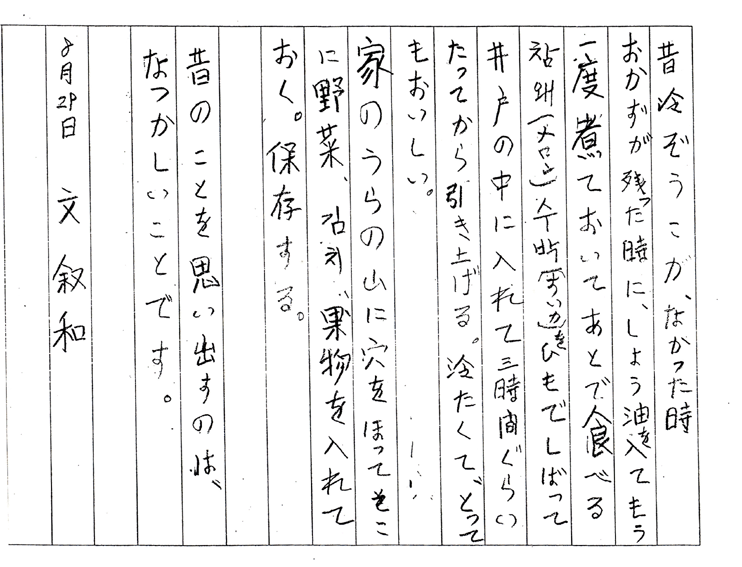 昔冷ぞうこが、なかった時
おかずが残った時に、しょう油を入てもう
一度煮ておいてあとで食べる
참외(メロン)수박(すいか)をひもでしばって
井戸の中に入れて三時間ぐらい
たってから引き上げる。冷たくて、とって
もおいしい。
家のうらの山に穴をほってそこ
に野菜、김치、果物を入れて
おく。保存する。
昔のことを思い出すのは、
なつかしいことです。
8月29日 文叙和